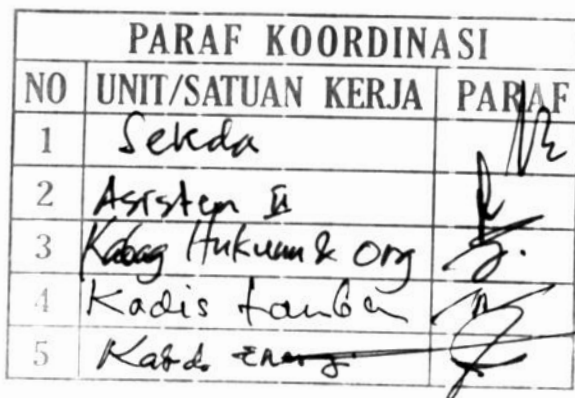 PARAF KOORDINASI
NO UNIT/SATUAN KERJA PARAF
1 Sekda
2 Asisten II
3 Kabag Hukum & Org
4 Kadis tamben
5